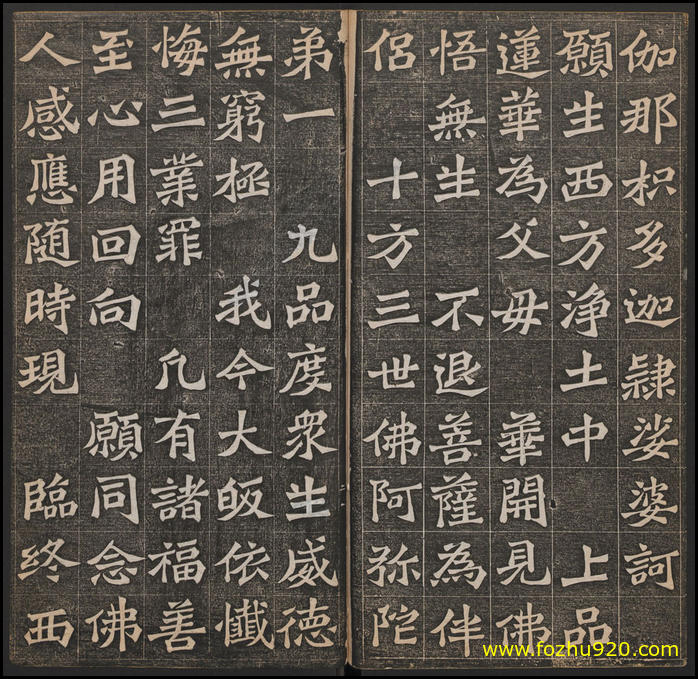 伽那枳多迦隸娑婆訶
願生西方浄土中 上品
蓮華為父毋 華開見佛
悟無生 不退菩薩為伴
侶 十方三世佛阿弥陀
弟一 九品度衆生威德
無窮極 我今大皈依懺
悔三業罪 凡有諸福善
至心用回向 願同念佛
人感應随時現 臨終西
www.fozhu920.com